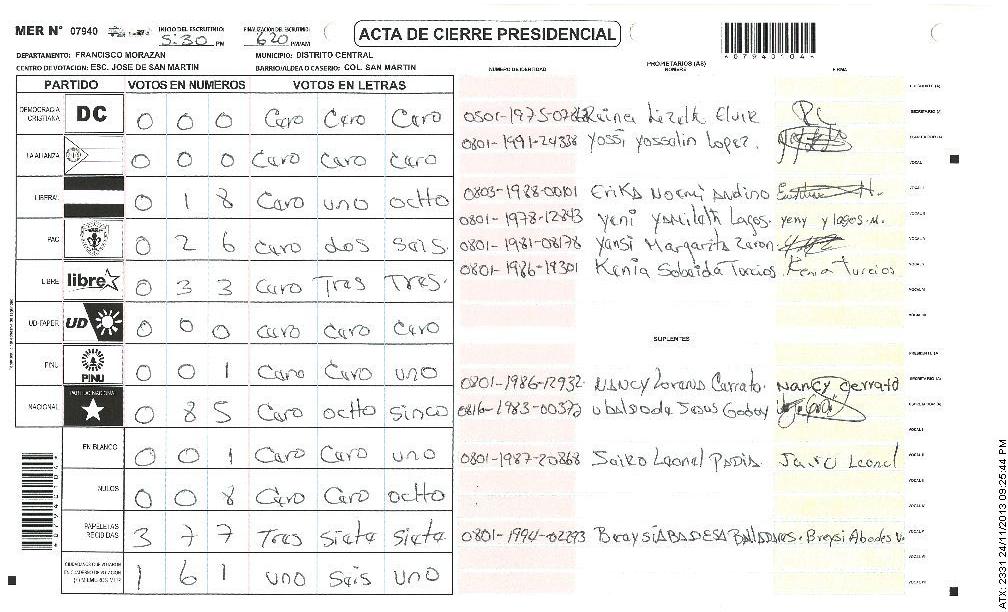 MER N° 07940 INICIO DEL ESCRUTINIO: 5:30 PM FINALIZACIÓN DEL ESCRUTINIO: 620 PM/AM ACTA DE CIERRE PRESIDENCIAL
DEPARTAMENTO: FRANCISCO MORAZAN MUNICIPIO: DISTRITO CENTRAL *079401044*
CENTRO DE VOTACION: ESC. JOSE DE SAN MARTIN BARRIO/ALDEA O CASERIO: COL. SAN MARTIN
PROPIETARIOS (AS)
NUMERO DE IDENTIDAD NOMBRE FIRMA
PARTIDO VOTOS EN NUMEROS VOTOS EN LETRAS
DEMOCRACIA CRISTIANA DC 0 0 0 Caro Caro Caro
LA ALIANZA 0 0 0 Caro Caro Caro
LIBERAL 0 1 8 Caro uno octto
PAC 0 2 6 Caro dos sais
LIBRE libre 0 3 3 Caro Tres Tres.
UD-FAPER UD 0 0 0 Caro Caro Caro
PINU PINU 0 0 1 Caro Caro uno
NACIONAL PARTIDO NACIONAL 0 8 5 Caro octto sinco
EN BLANCO 0 0 1 Caro Caro uno
NULOS 0 0 8 Caro Caro octto
PAPELETAS RECIBIDAS 3 7 7 Tras siete siete
CIUDADANOS QUE VOTARON 1 6 1 uno sais uno
Reina Lizeth
0801-1991-24338 Yossi Yossalin Lopez.
0803-1928-00101 Erika Noemi Andino
0801-1978-12843 Yeni Yamileth Lagos. yeny y lagos. M.
0801-1981-08178 Yansi Margarita
0801-1986-19301 Kenia Sobaida Turcios Kenia Turcios
SUPLENTES
0801-1986-12932 Nancy Lorena Cerrato. Nancy Cerrato
0816-1983-00372 Ubaldo de Jesus Godoy
0801-1987-20868 Jairo Leonel Padia Jairo Leonel
0801-1994-02293 Breysi Abades V.
ATX: 2331 24/11/2013 09:25:44 PM